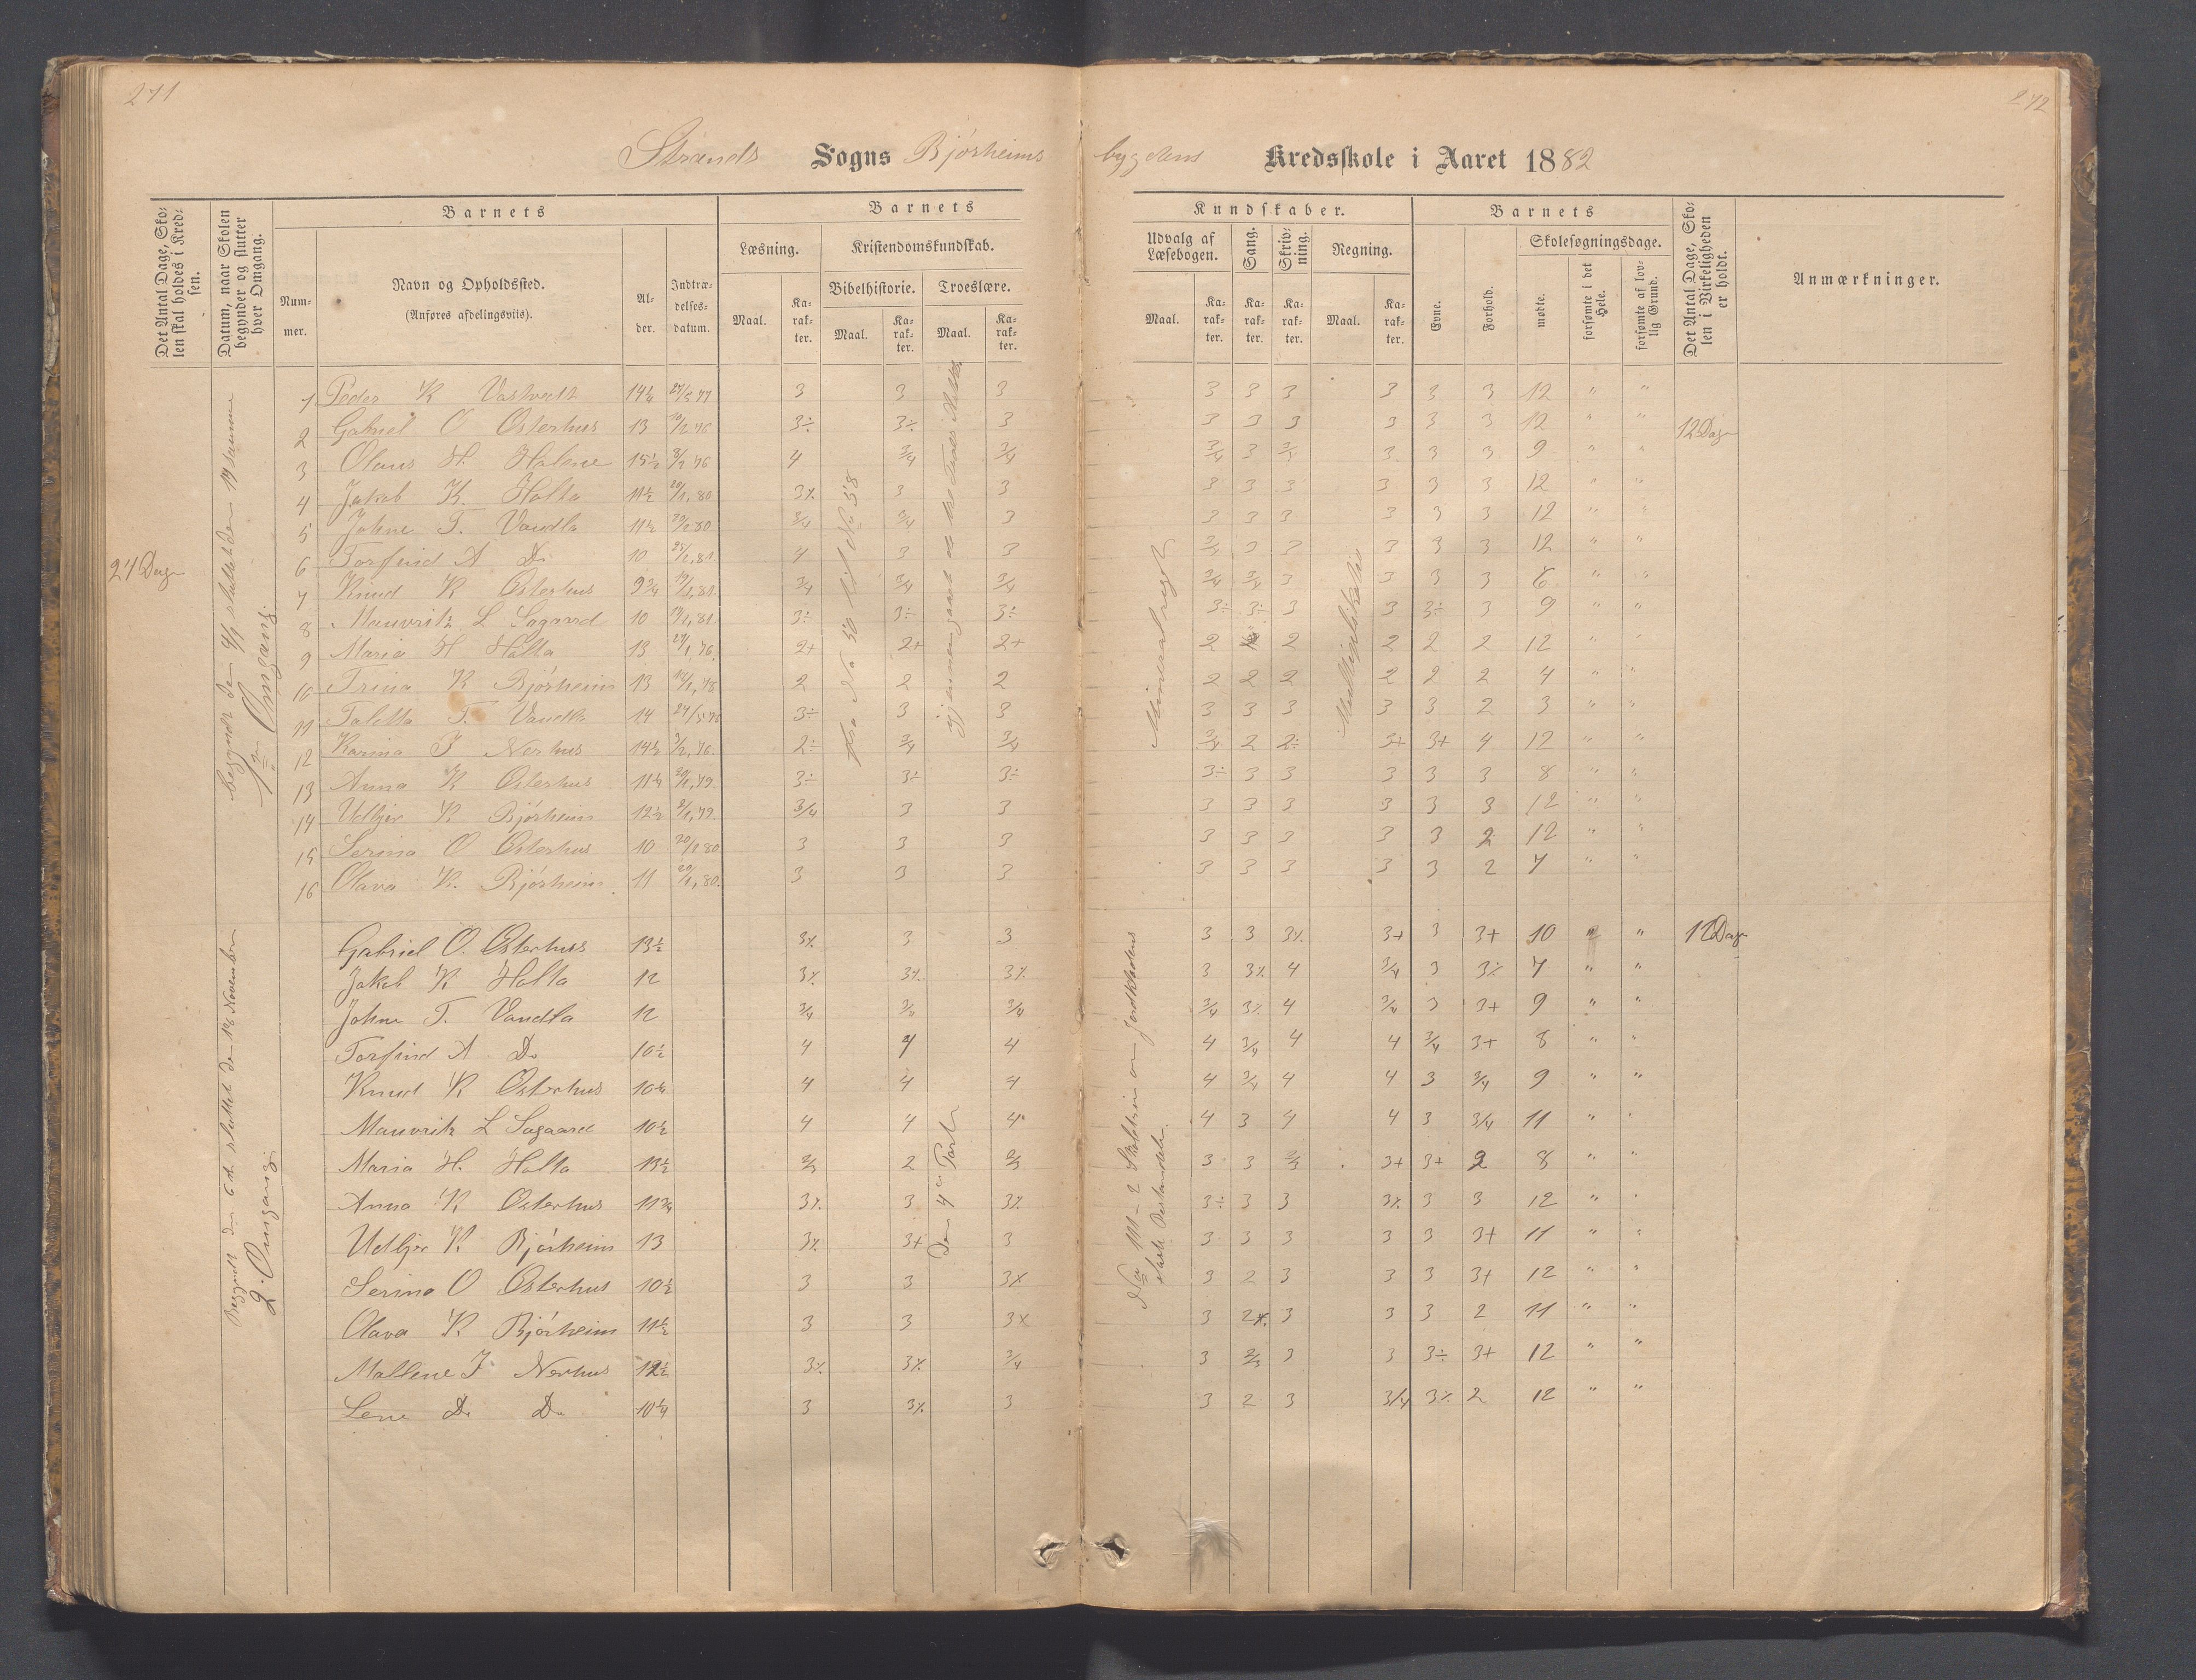 271
272
Strands Sogns Bjórheims
bygdens Kredsskole i Aaret 1882
Det Antal Dage, Skolen skal holdes i Kredsen.
Datum, naar Skolen begynder og slutter hver Omgang.
Barnets
Nummer.
Navn og Opholdssted.
(Anføres afdelingsviis).
Alder.
Indtrædelsesdatum.
Barnets
Læsning.
Maal.
Karakter.
Kristendomskundskab.
Bibelhistorie.
Maal.
Karakter.
Troeslære.
Maal.
Karakter.
Kundskaber.
Udvalg af Læsebogen.
Maal.
Karakter.
Sang.
Karakter.
Skrivning.
Karakter.
Regning.
Maal.
Karakter.
Barnets
Evne.
Forhold.
Skolesøgningsdage.
mødte.
forsømte i det Hele.
forsømte af lovlig Grund.
Det Antal Dage, Skolen i Virkeligheden er holdt.
Anmærkninger.
24 Dage
1ste Omgang
1 Peder K Vastvedt 14½ 3 3 3 3 3 3 3 3 3 12 " "
2 Gabriel O Østerhus 13 3÷ 3÷ 3 3 3 3 3 3 3 12 " " 12 Dage
3 Olaus H. Halene 15½ 4 3/4 3/4 3/4 3 3 3 3 9 " "
4 Jakob K. Holta 11½ 20/1,80 3% 3 3 3 3 3 3 3 3 12 " "
5 Johne T. Vandla 11½ 3/4 3/4 3 3 3 3 3 3 3 12 " "
6 Torfind A Do 10 4 3 3 3 3 3 3 3 12 " "
7 Knud K Østerhus 9¾ 3/4 3/4 3/4 3/4 3/4 3 3 3 3 6 " "
8 Mauvritz L Sagaard 10 3÷ 3÷ 3÷ 3÷ 3÷ 3 3 3÷ 3 9 " "
9 Maria H Holta 13 2+ 2+ 2+ 2 2 2 2 2 12 " "
10 Trina K Bjórheim 13 2 2 2 2 2 2 2 2 2 4 " "
11 Taletta T. Vandla 14 3÷ 3 3 3 3 3 3 3 2 3 " "
12 Karina J Nerhus 14½ 2÷ 3/4 3/4 3/4 2 2÷ 3+ 3+ 4 12 " "
13 Anna K Østerhus 11¼ 3÷ 3÷ 3÷ 3÷ 3 3 3 3 3 8 " "
14 Udbjør K Bjórheim 12½ 3/4 3 3 3 3 3 3 3 3 12 " "
15 Serina O Østerhus 10 3 3 3 3 3 3 3 3 2 12 " "
16 Olava K. Bjórheim. 11 20/1,80. 3 3 3 3 3 3 3 3 2 7 " "
Multiplikation
2. Omgang
Gabriel O. Østerhus 13½ 3% 3 3 3 3 3% 3+ 3 3+ 10 " " 12 Dage
Jakob K Holta 12 3% 3% 3% 3 3% 4 3/4 3 3% 7 " "
Johne T. Vandla 12 3/4 3/4 3/4 3/4 3% 4 3/4 3 3+ 9 " "
Torfind A Do 10½ 4 4 4 4 3/4 4 4 3/4 3+ 8 " "
Knud K Østerhus 10¼ 4 4 4 4 3/4 4 4 3 3/4 9 " "
Mauvritz L Sagaard 10½ 4 4 4 4 3 4 4 3 3/4 11 " "
Maria H. Holta 13½ 2/3 2 2/3 3 3 2/3 3+ 3+ 2 8 " "
Anna K Østerhus 11¾ 3% 3 3% 3÷ 3 3 3% 3 3 12 " "
Udbjør K Bjórheim 13 3% 3+ 3 3 3 3 3 3 3+ 11 " "
Serina O Østerhus 10½ 3 3 3% 3 2 3 3 3 3+ 12 " "
Olava K Bjórheim 11½ 3 3 3% 3 2% 3 3 3 2 11 " "
Mallene J Nerhus 12½ 3% 3% 3/4 3 2/3 3 3 3÷ 3+ 12 " "
Lene Do Do 10¼ 3 3% 3 3 2 3 3/4 3% 2 12 " "
Den 4de Part